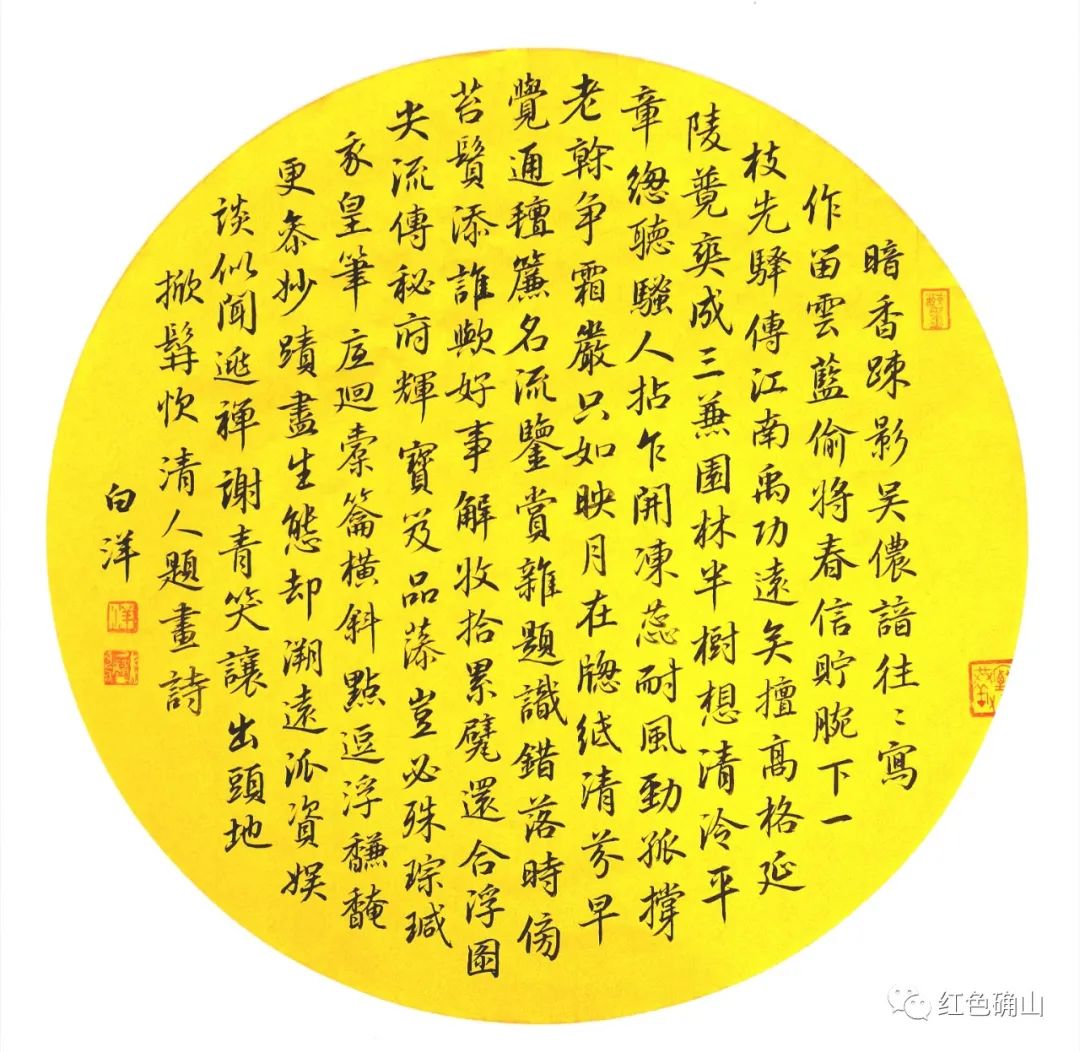 暗香疎影吴儂諳往〻寫
作笛雲藍偷將春信貯腕下一
枝先驛傳江南禹功遠矣擅高格延
陵竟爽成三蒹園林半樹想清泠平
章總聽騷人拈乍開凍蕊耐風勁孤撐
老榦争霜嚴只如映月在牕紙清芬早
覺通氊簾名流鑒賞雜題識錯落時傍
苔鬢添誰歟好事解收拾累甓還合浮圖
尖流傳秘府輝寶笈品藻豈必殊琮瑊
我皇筆底迴橐籥橫斜點逗浮馦馣
更叅妙蹟盡生態却溯遠派資娱
談似聞逃禅謝青笑讓出頭地
掀髯忺清人題畫詩
白洋
红色确山